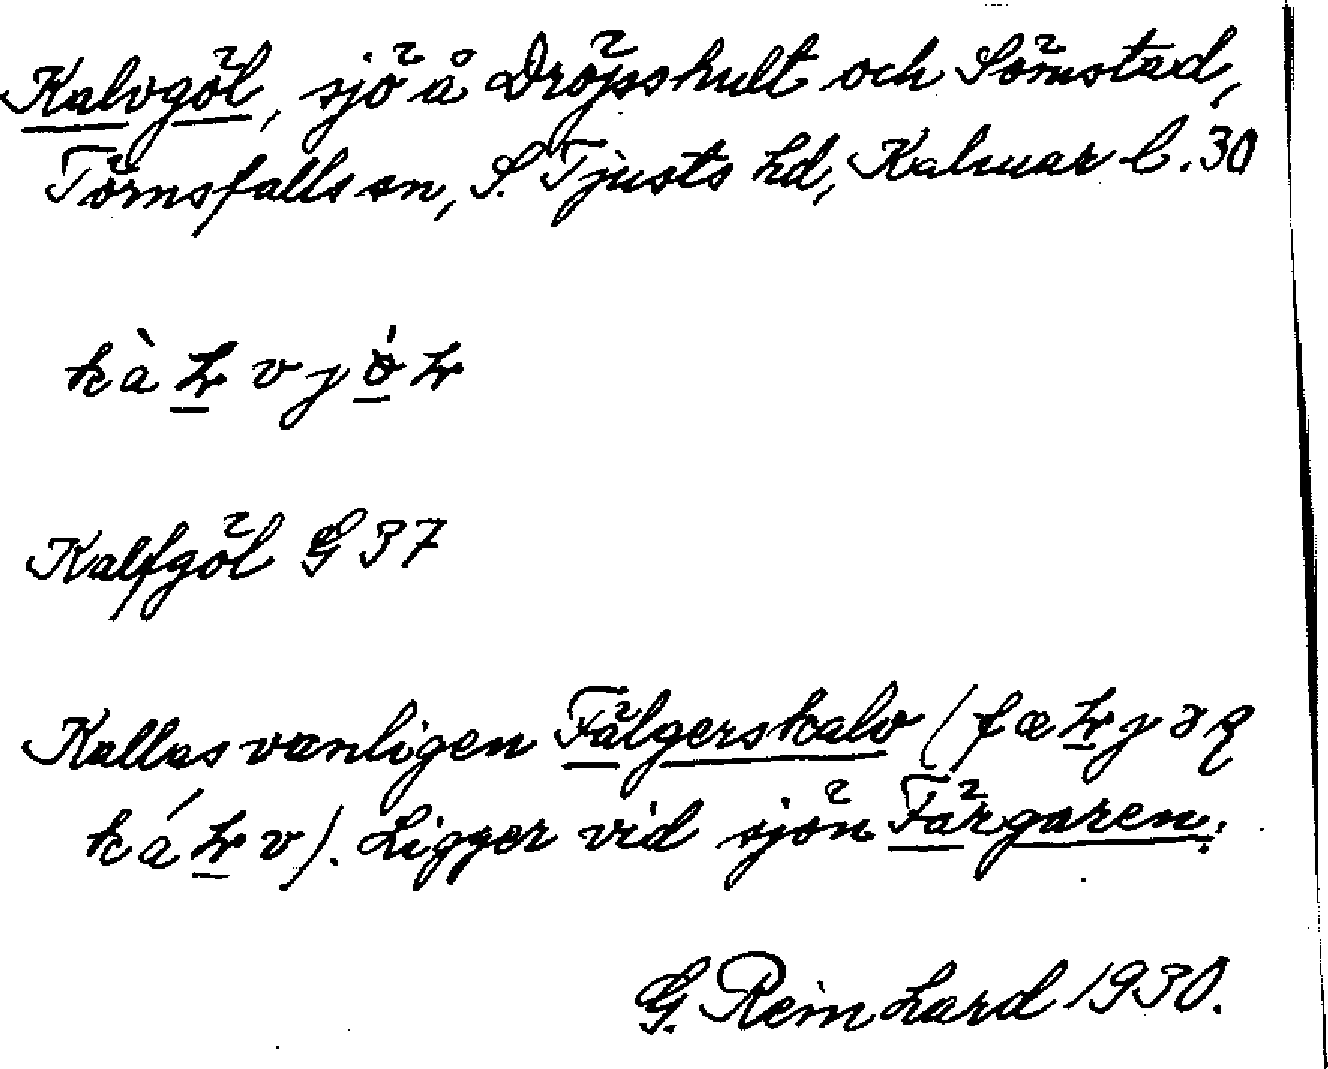 Kalvgöl, sjö å Dröpshult och Sömstad,
Törnsfalls sn, S. Tjusts hd, Kalmar l. 30
Kalfgöl G 37
Kallas vanligen Fälgerskalv (
). Ligger vid sjön Färgaren.
G. Reinhard 1930.